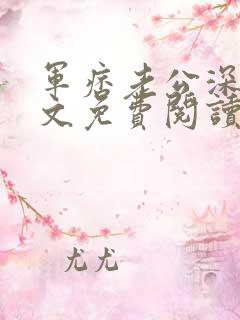 軍痞老公深
文免費閱讀
尤尤